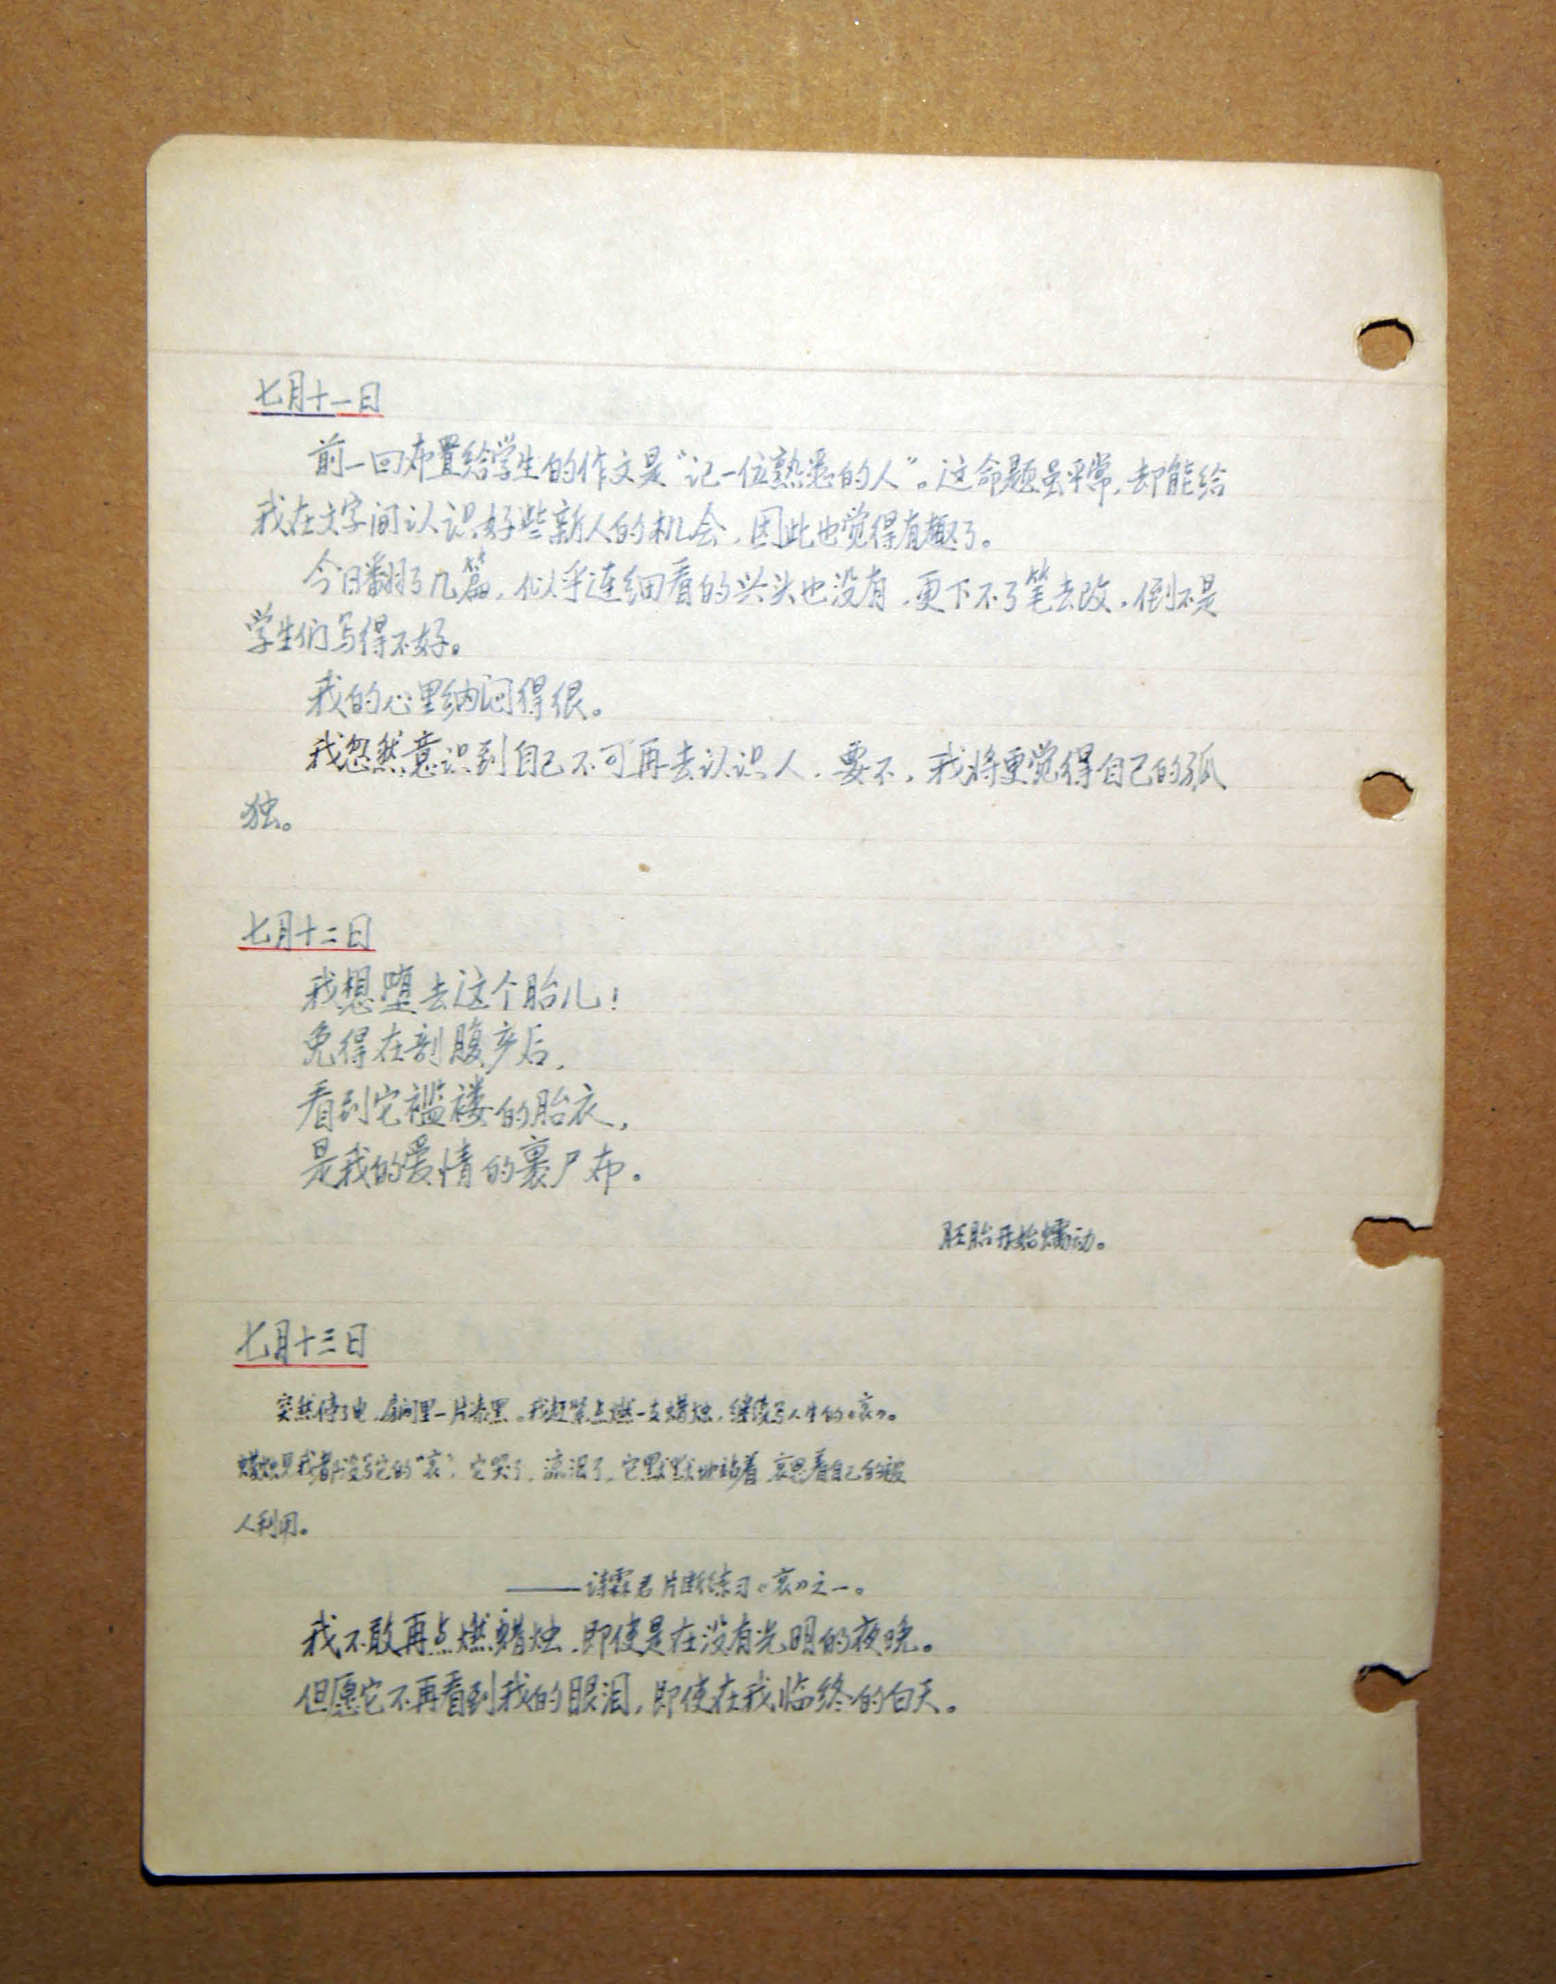 七月十一日
前一回布置给学生的作文是“记一位熟悉的人”。这命题虽平常，却能给
我在文字间认识好些新人的机会，因此也觉得有趣了。
今日翻了几篇，似乎连细看的兴头也没有，更下不了笔去改，倒不是
学生们写得不好。
我的心里纳闷得很。
我忽然意识到自己不可再去认识人，要不，我将更觉得自己的孤
独。
七月十二日
我想堕去这个胎儿！
免得在剖腹产后，
看到它褴褛的胎衣，
是我的爱情的裹尸布。
胚胎开始蠕动。
七月十三日
突然停了电，房间里一片漆黑。我赶紧点燃一支蜡烛，继续写人生的《哀》。
蜡烛见我都没写它的“哀”，它哭了，流泪了，它默默地站着，哀思着自己的被
人利用。
——诗霖君片断练习《哀》之一。
我不敢再点燃蜡烛，即使是在没有光明的夜晚。
但愿它不再看到我的眼泪，即使在我临终的白天。